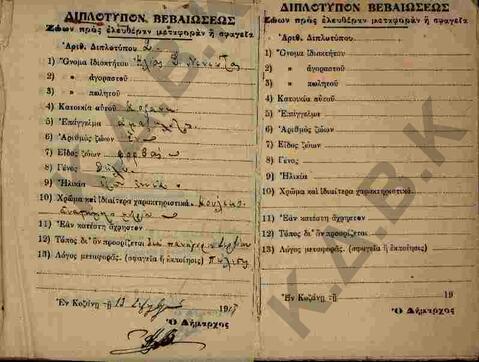 ΔΙΠΛΟΤΥΠΟΝ ΒΕΒΑΙΩΣΕΩΣ
Ζώων πρὸς ἐλευθέραν μεταφορὰν ἢ σφαγεῖα
Ἀριθ. Διπλοτύπου 2
1) Ὄνομα ἰδιοκτήτου Ἠλίας
2) » ἀγοραστοῦ
3) » πωλητοῦ
4) Κατοικία αὐτοῦ Κοζάνη
5) Ἐπάγγελμα
6) Ἀριθμὸς ζώων
7) Εἶδος ζώων φορβὰς
8) Γένος θῆλυ
9) Ἡλικία
10) Χρῶμα καὶ ἰδιαίτερα χαρακτηριστικὰ
11) Ἐὰν κατέστη ἄχρηστον
12) Τόπος δι' ὃν προορίζεται
13) Λόγος μεταφορᾶς. (σφαγεῖα ἢ ἐκποίησις)
Ἐν Κοζάνῃ τῇ 13 19
Ὁ Δήμαρχος
ΔΙΠΛΟΤΥΠΟΝ ΒΕΒΑΙΩΣΕΩΣ
Ζώων πρὸς ἐλευθέραν μεταφορὰν ἢ σφαγεῖα
Ἀριθ. Διπλοτύπου
1) Ὄνομα ἰδιοκτήτου
2) » ἀγοραστοῦ
3) » πωλητοῦ
4) Κατοικία αὐτοῦ
5) Ἐπάγγελμα
6) Ἀριθμὸς ζώων
7) Εἶδος ζώων
8) Γένος
9) Ἡλικία
10) Χρῶμα καὶ ἰδιαίτερα χαρακτηριστικὰ
11) Ἐὰν κατέστη ἄχρηστον
12) Τόπος δι' ὃν προορίζεται
13) Λόγος μεταφορᾶς. (σφαγεῖα ἢ ἐκποίησις)
Ἐν Κοζάνῃ τῇ 19
Ὁ Δήμαρχος
Κ.Δ.Β.Κ